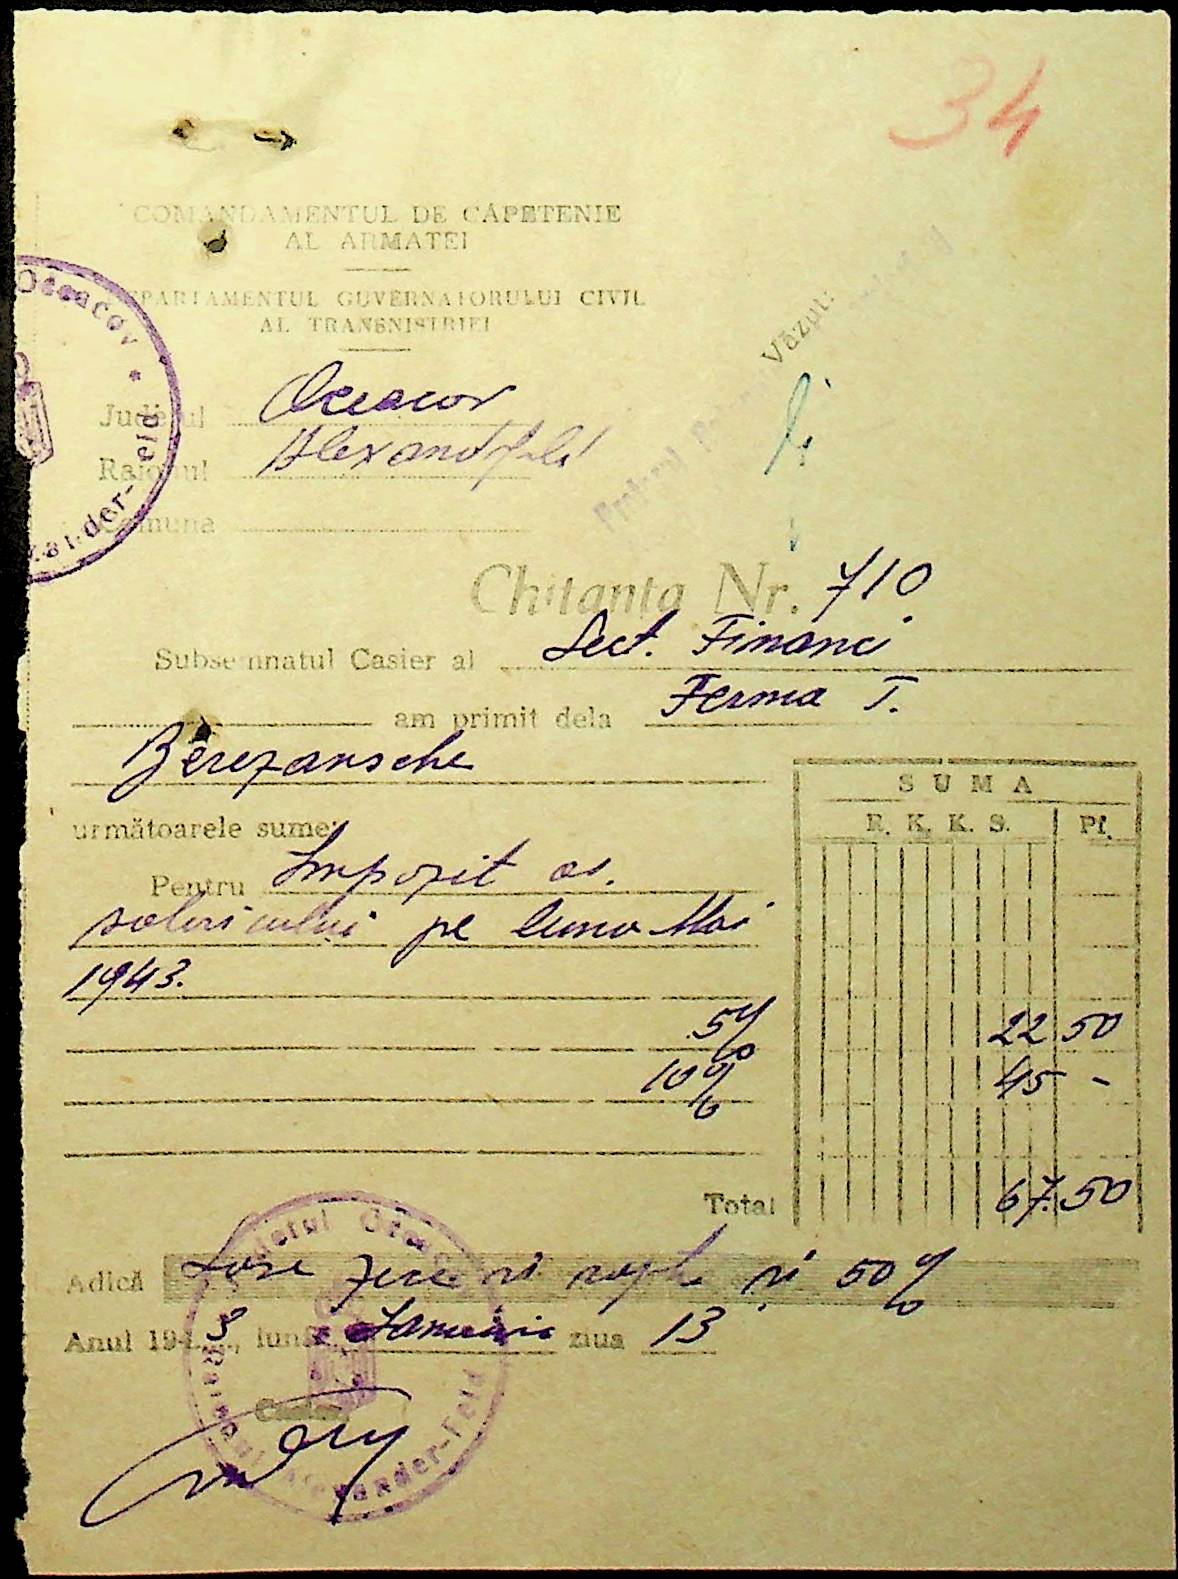 34
COMANDAMENTUL DE CĂPETENIE
AL ARMATEI
DEPARTAMENTUL GUVERNATORULUI CIVIL
AL TRANSNISTRIEI
Văzut:
Județul Oceacov
Raionul Alexandfeld
Comuna
Chitanța Nr. 710
Subsemnatul Casier al Sect. Financi
am primit dela Ferma T.
Berezansche
următoarele sume:
SUMA
R. K. K. S. Pf.
Pentru Impozit as.
salariului pe luna Mai
1943.
5% 22 50
10% 45 -
Total 67.50
Adică șase zeci și șapte și 50%
Anul 1943, luna Ianuarie ziua 13
Casier,
Județul Oceacov
Raionul Alexander-Feld